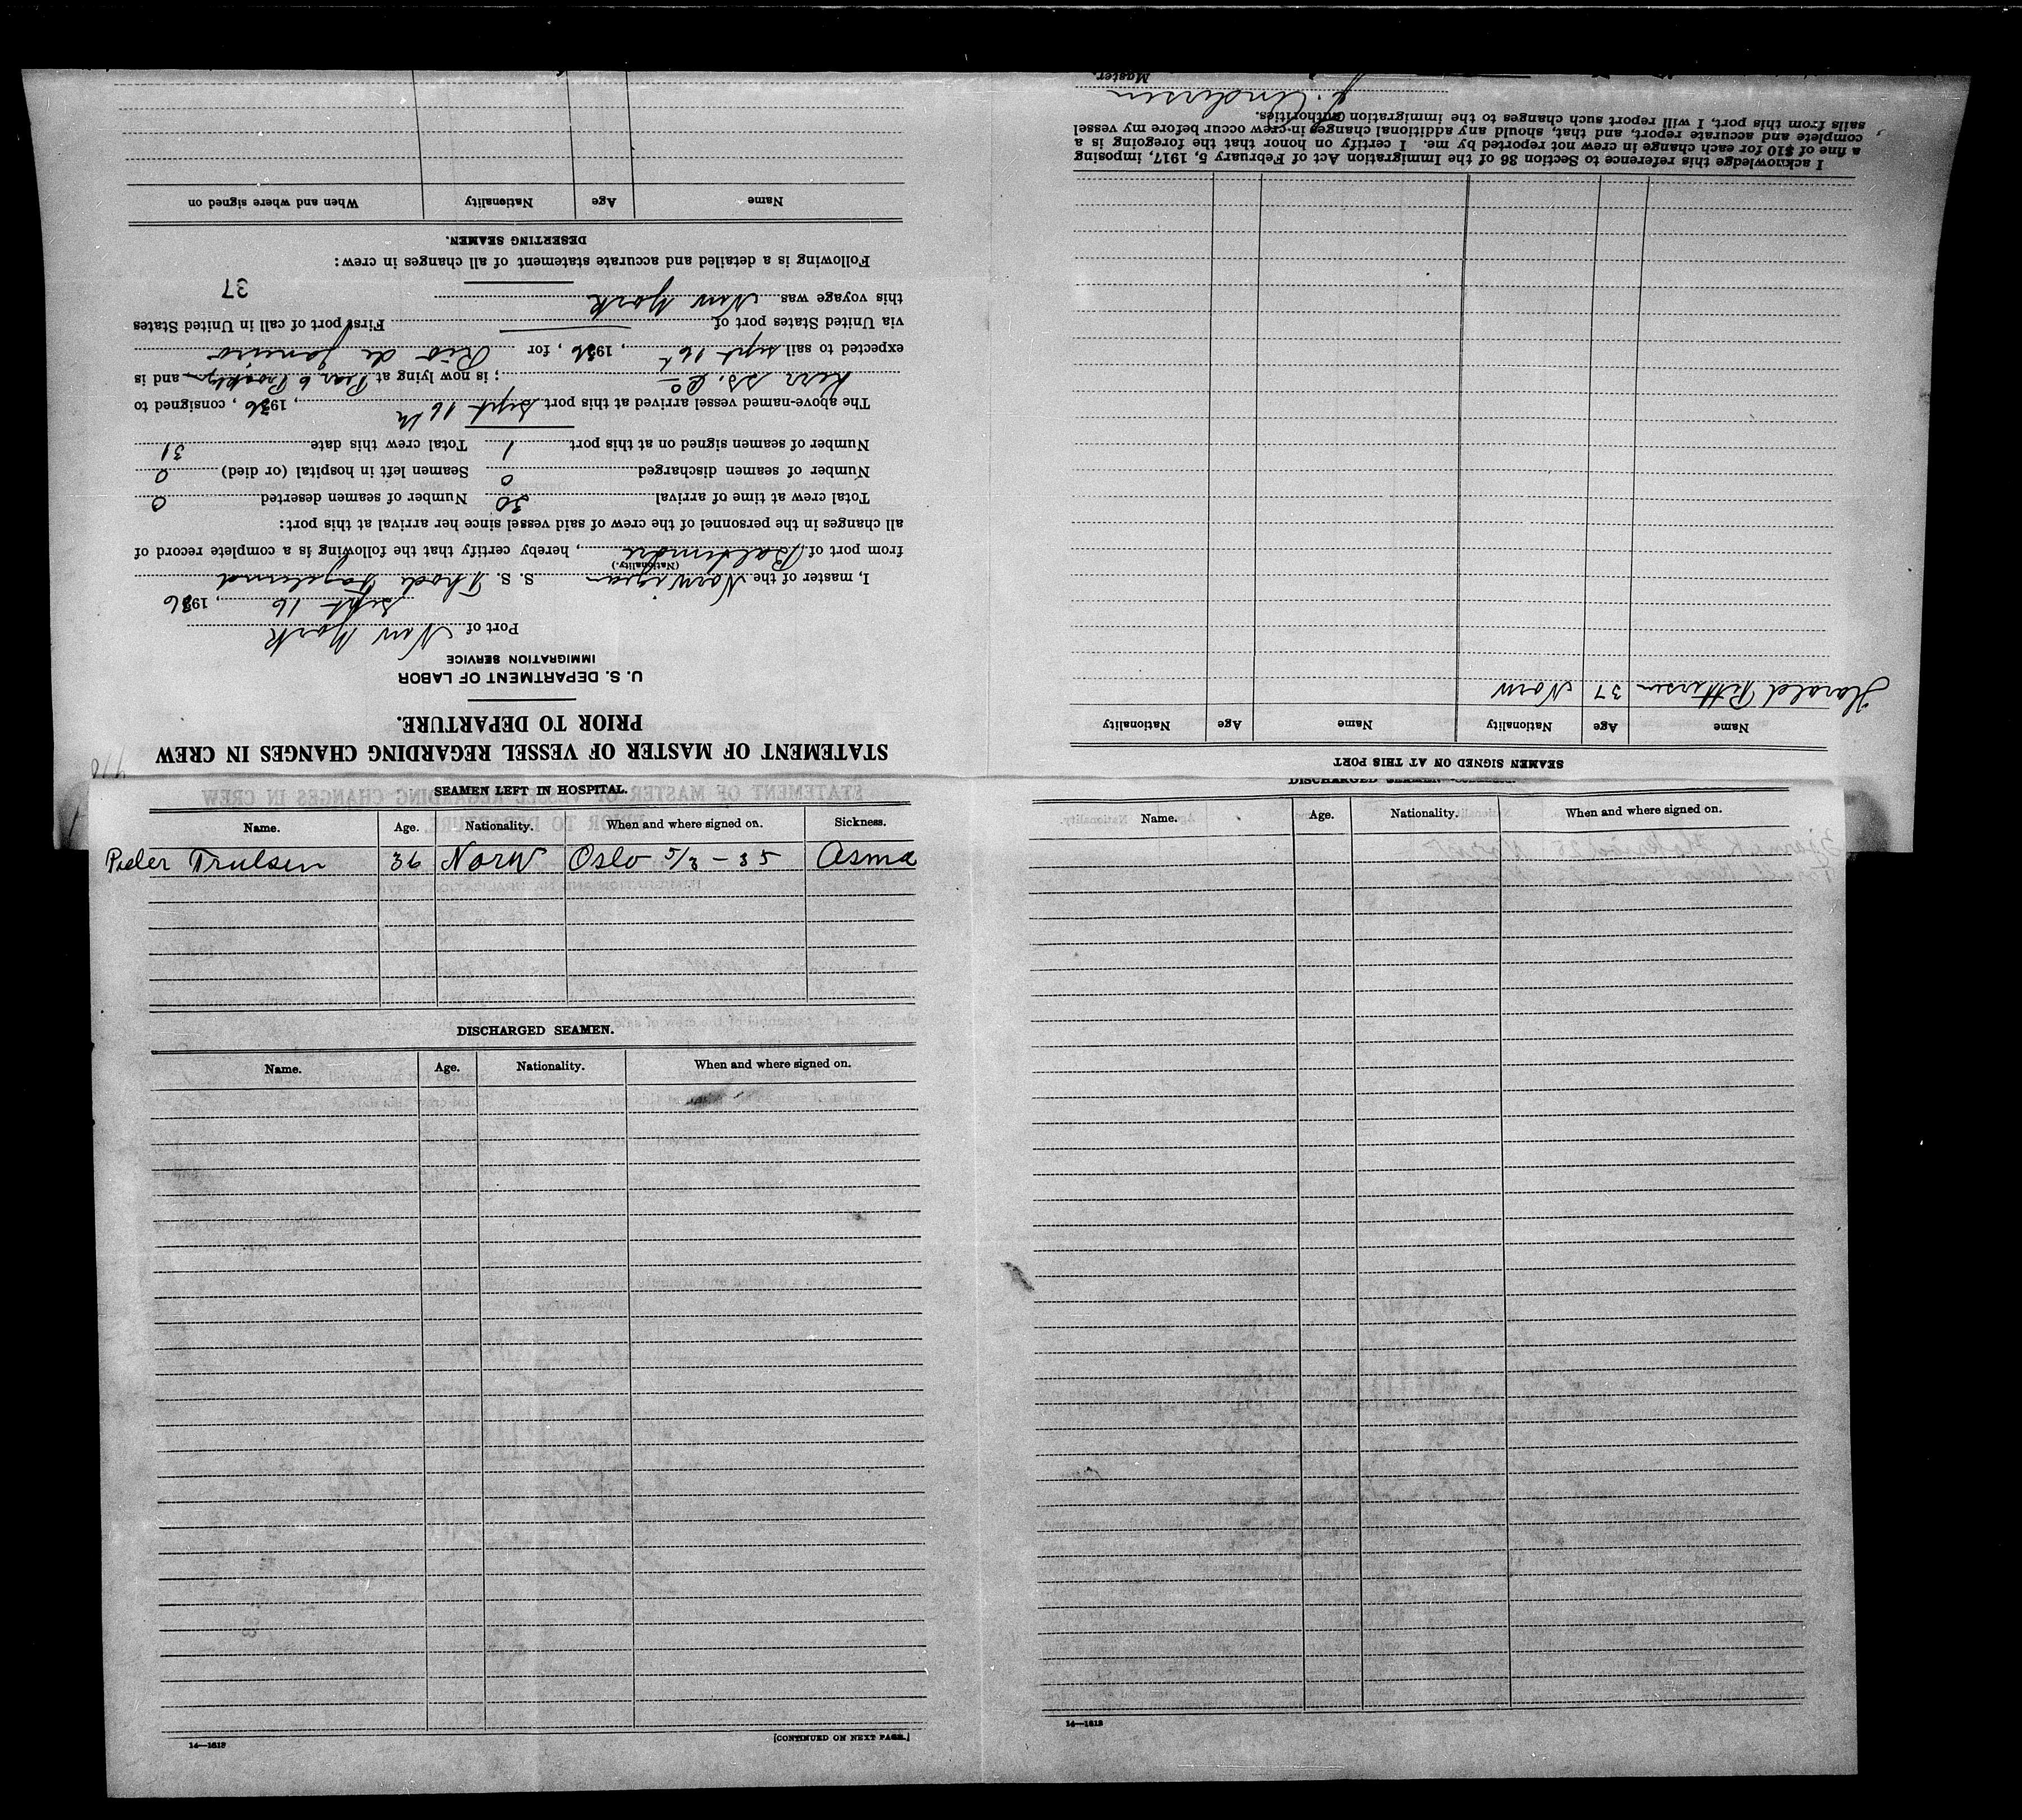 STATEMENT OF MASTER OF VESSEL REGARDING CHANGES IN CREW
PRIOR TO DEPARTURE.
U. S. DEPARTMENT OF LABOR
IMMIGRATION SERVICE
Port of New York
Sept 16, 1936
I, master of the Norwigian S. S. Thode Fagelund
(Nationality.)
from port of Baltimore, hereby certify that the following is a complete record of
all changes in the personnel of the crew of said vessel since her arrival at this port:
Total crew at time of arrival 30 Number of seamen deserted 0
Number of seamen discharged 0 Seamen left in hospital (or died) 0
Number of seamen signed on at this port 1 Total crew this date 31
The above-named vessel arrived at this port Sept 16th, 1936, consigned to
Kerr S.S. Co; is now lying at Pear 6 Brooklyn and is
expected to sail Sept 16th, 1936, for Rio de Janeiro
via United States port of First port of call in United States
this voyage was New York
37
Following is a detailed and accurate statement of all changes in crew:
DESERTING SEAMEN.
Name Age Nationality When and where signed on
SEAMEN SIGNED ON AT THIS PORT
Name Age Nationality Name Age Nationality
Harald Pettersen 37 Norw
I acknowledge this reference to Section 36 of the Immigration Act of February 5, 1917, imposing
a fine of $10 for each change in crew not reported by me. I certify on honor that the foregoing is a
complete and accurate report, and that, should any additional changes in crew occur before my vessel
sails from this port, I will report such changes to the immigration authorities.
Andersen
Master.
SEAMEN LEFT IN HOSPITAL.
Name. Age. Nationality. When and where signed on. Sickness.
Peder Trulsen 36 Norw Oslo 5/3 - 35 Asma
DISCHARGED SEAMEN.
Name. Age. Nationality. When and where signed on.
14—1618
[CONTINUED ON NEXT PAGE.]
DISCHARGED SEAMEN
Name. Age. Nationality. When and where signed on.
14—1618